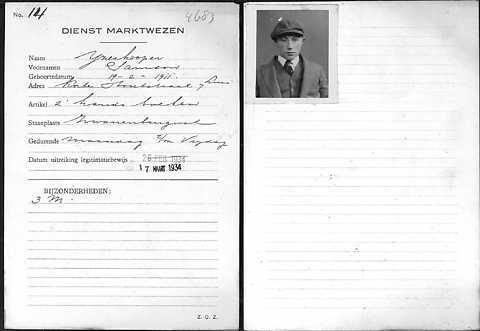 No. 14
4683
DIENST MARKTWEZEN
Naam IJzerkooper
Voornamen Salomon
Geboortedatum 19-2-1911.
Adres Korte Houtstraat 7
Artikel 2e hands boeken
Staanplaats Zwanenburgwal
Gedurende maandag t/m Vrijdag
Datum uitreiking legitimatiebewijs 26 FEB 1934
17 MAART 1934
BIJZONDERHEDEN:
3 M.
Z. O. Z.